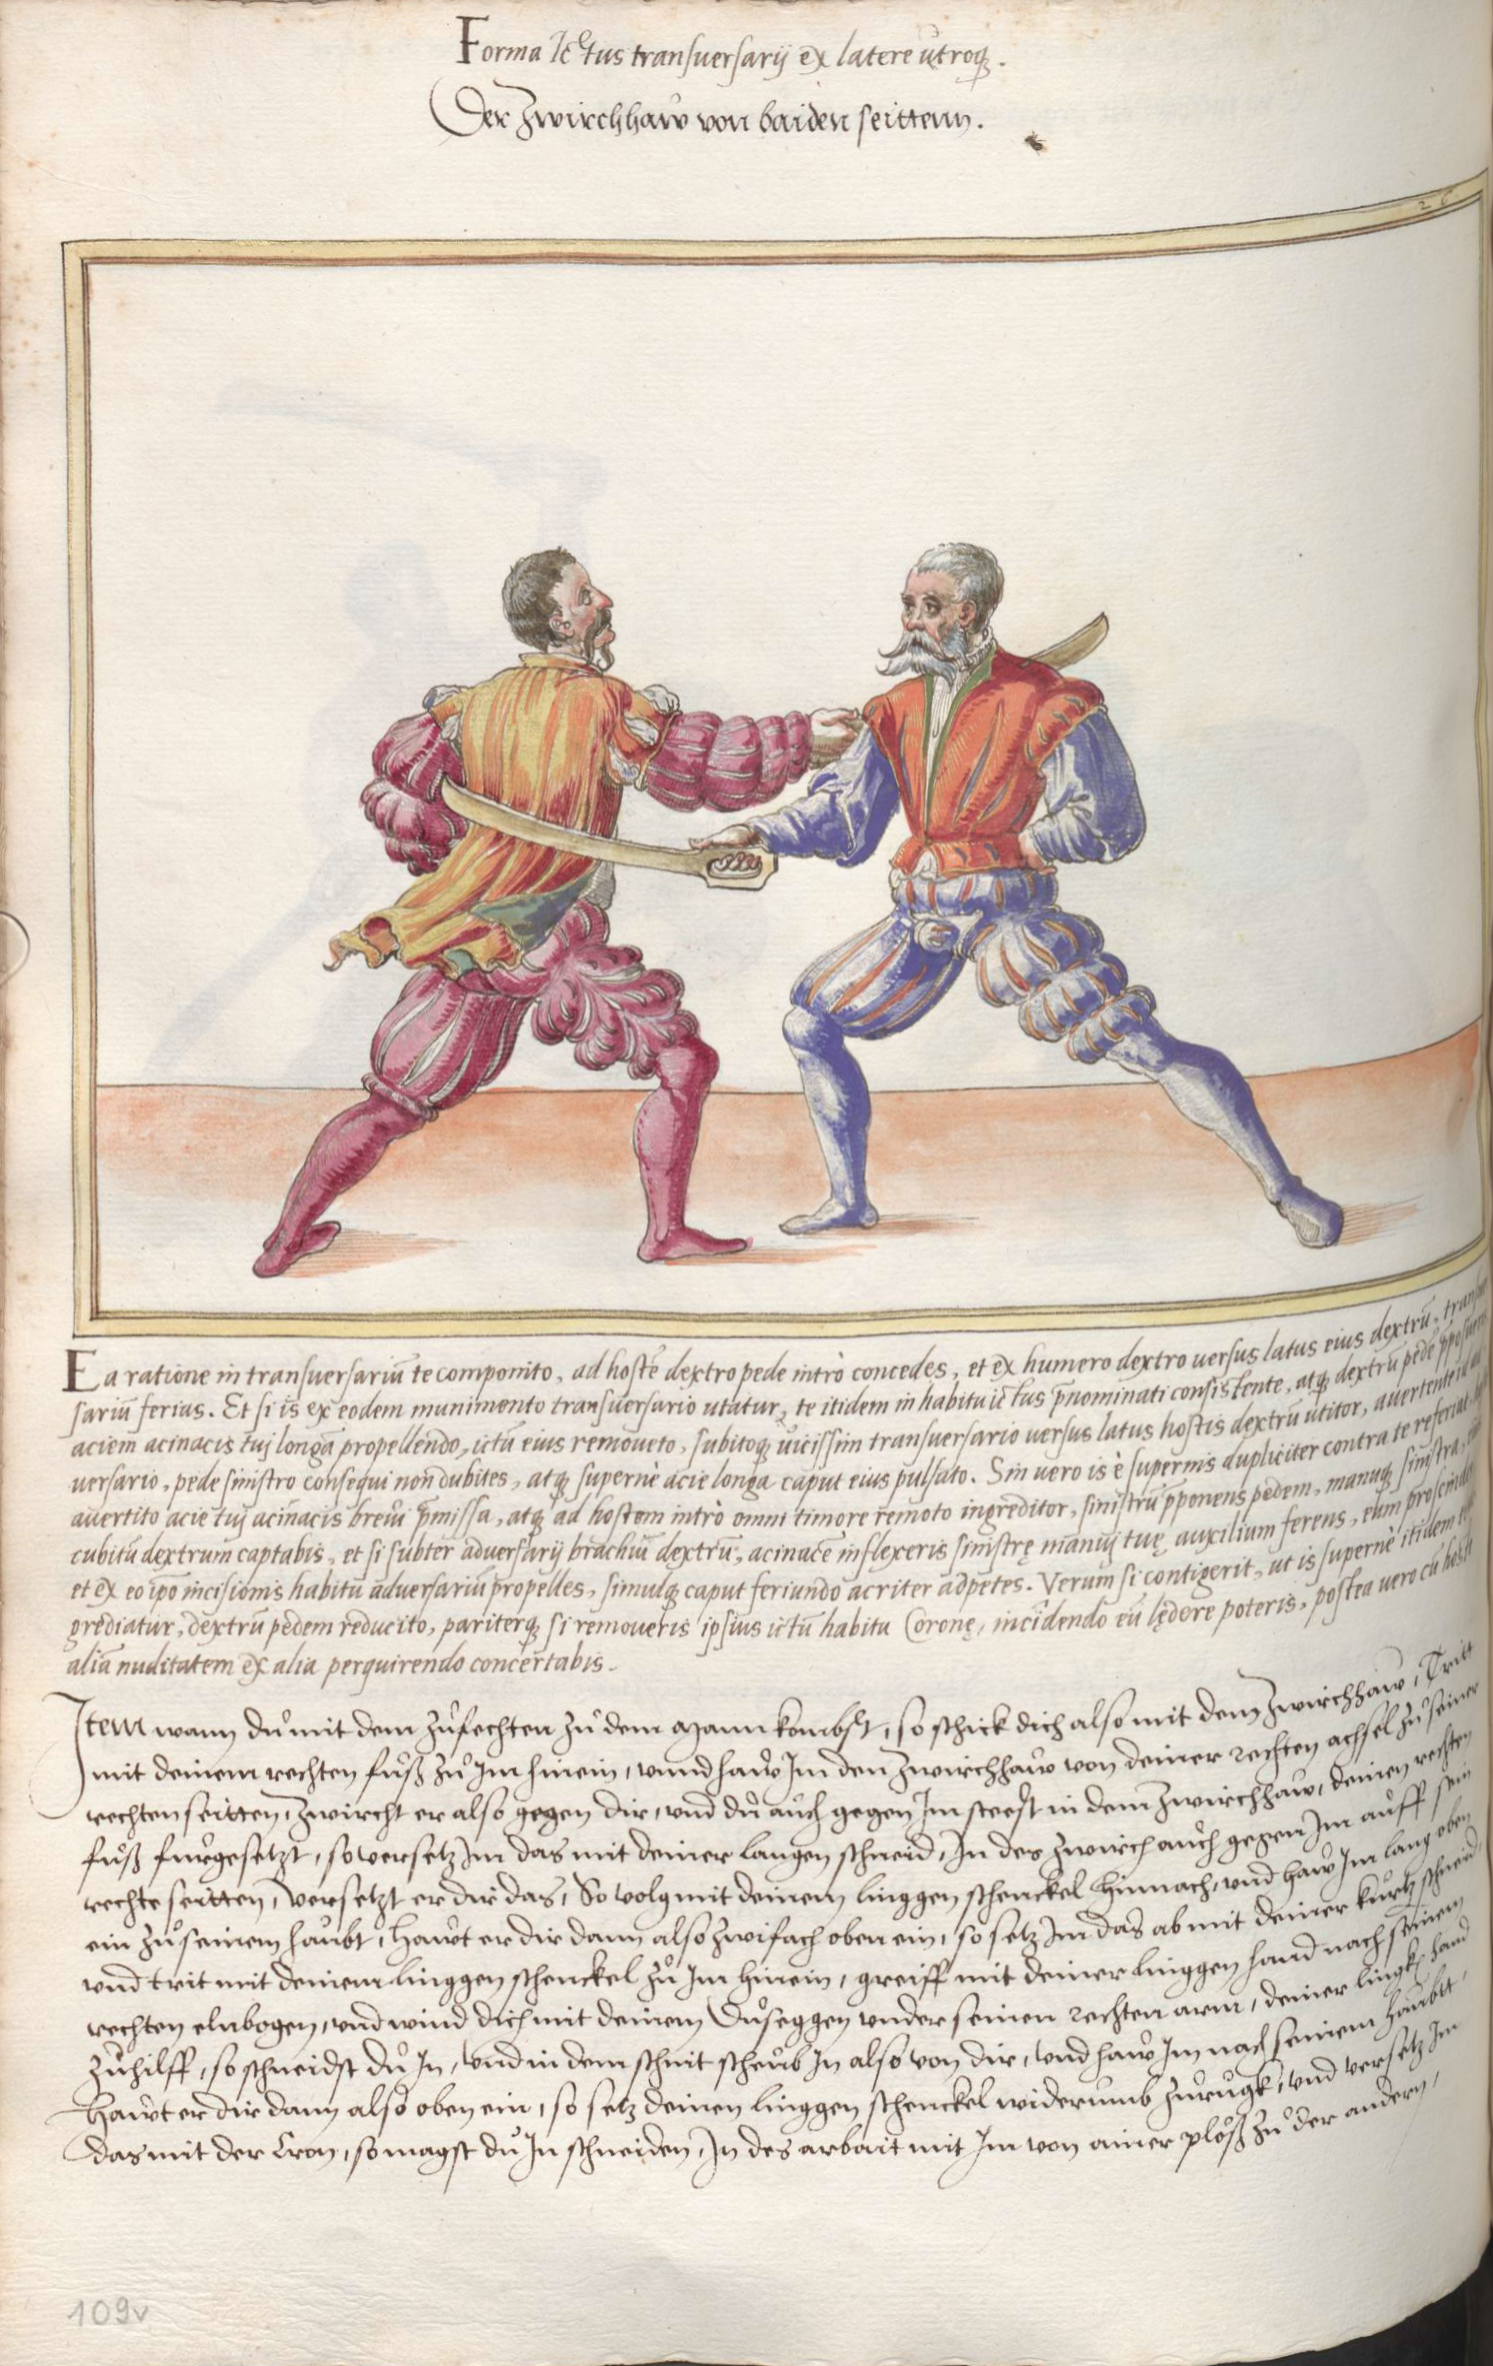 Forma Ictus transuersarij ex latere utroq₃.
Der Zwirchhaw von baiden seittenn.
26
Ea ratione in transuersariū te componito, ad hostē dextro pede intrò concedes, et ex humero dextro uersus latus eius dextrū,
sariū ferias. Et si is ex eodem munimento transuersario utatur, te itidem in habitu ictus p̄nominati consistente, atq₃ dextrū pedē
aciem acinacis tuj longā propellendo, ictū eius remoueto, subitoq₃ uicissim transuersario uersus latus hostis dextrū utitor, auertente
uersario, pede sinistro consequi non dubites, atq₃ supernè acie longa caput eius pulsato. Sin uero is è supernis dupliciter contra te referiat,
auertito acie tuj acinacis breui p̄missa, atq₃ ad hostem intrò omni timore remoto ingreditor, sinistrū pponens pedem, manuq₃ sinistra,
cubitū dextrum captabis, et si subter aduersarij brachiū dextrū, acinacē inflexeris sinistrę manuj tuę auxilium ferens, eum
et ex eo ipo incisionis habitu aduersariū propelles, simulq₃ caput feriundo acriter adpetes. Verum si contigerit, ut is supernè itidem
grediatur, dextrū pedem reducito, pariterq₃ si remoueris ipsius ictū habitu Coronę, incidendo eū lędere poteris, postea uero cū
aliā nuditatem ex alia perquirendo concertabis.
Item wann dů mit dem zůfechten zů dem mann kombst, so schick dich also mit dem Zwirchhaw, Tritt
mit deinem rechten fůß zů Im hinein, vnnd haw Im den Zwirchhaw von deiner rechten achsel zů seiner
rechten seitten, Zwircht er also gegen dir, vnd dů aůch gegen Im steest in dem Zwirchhaw, deinen rechten
fůß fůrgesetzt, so versetz Im das mit deiner langen schneid, In des zwirch aůch gegen Im aůff sein
rechte seitten, Versetzt er dir das, So volg mit deinem linggen schenckel hinnach, vnd haw Im lang oben
ein zů seinem haůbt, Hawt er dir dann also zwifach oben ein, so setz Im das ab mit deiner kůrtz schneid,
vnd trit mit deinem linggen schenckel zů Im hinein, greiff mit deiner linggen hand nach seinem
rechten elnbogen, vnd wind dich mit deinem Důseggen vnder seinen rechten arm, deiner lingk hand
zůhilff, so schneidst dů In, Vnd in dem schnit scheůb In also von dir, vnd haw Im nach seinem haůbtt,
Hawt er dir dann also oben ein, so setz deinen linggen schenckel widerumb zůrůgk, vnd versetz Im
das mit der Cron, so magst dů In schneiden, In des arbait mit Im von ainer plöß zů der andern,
109v